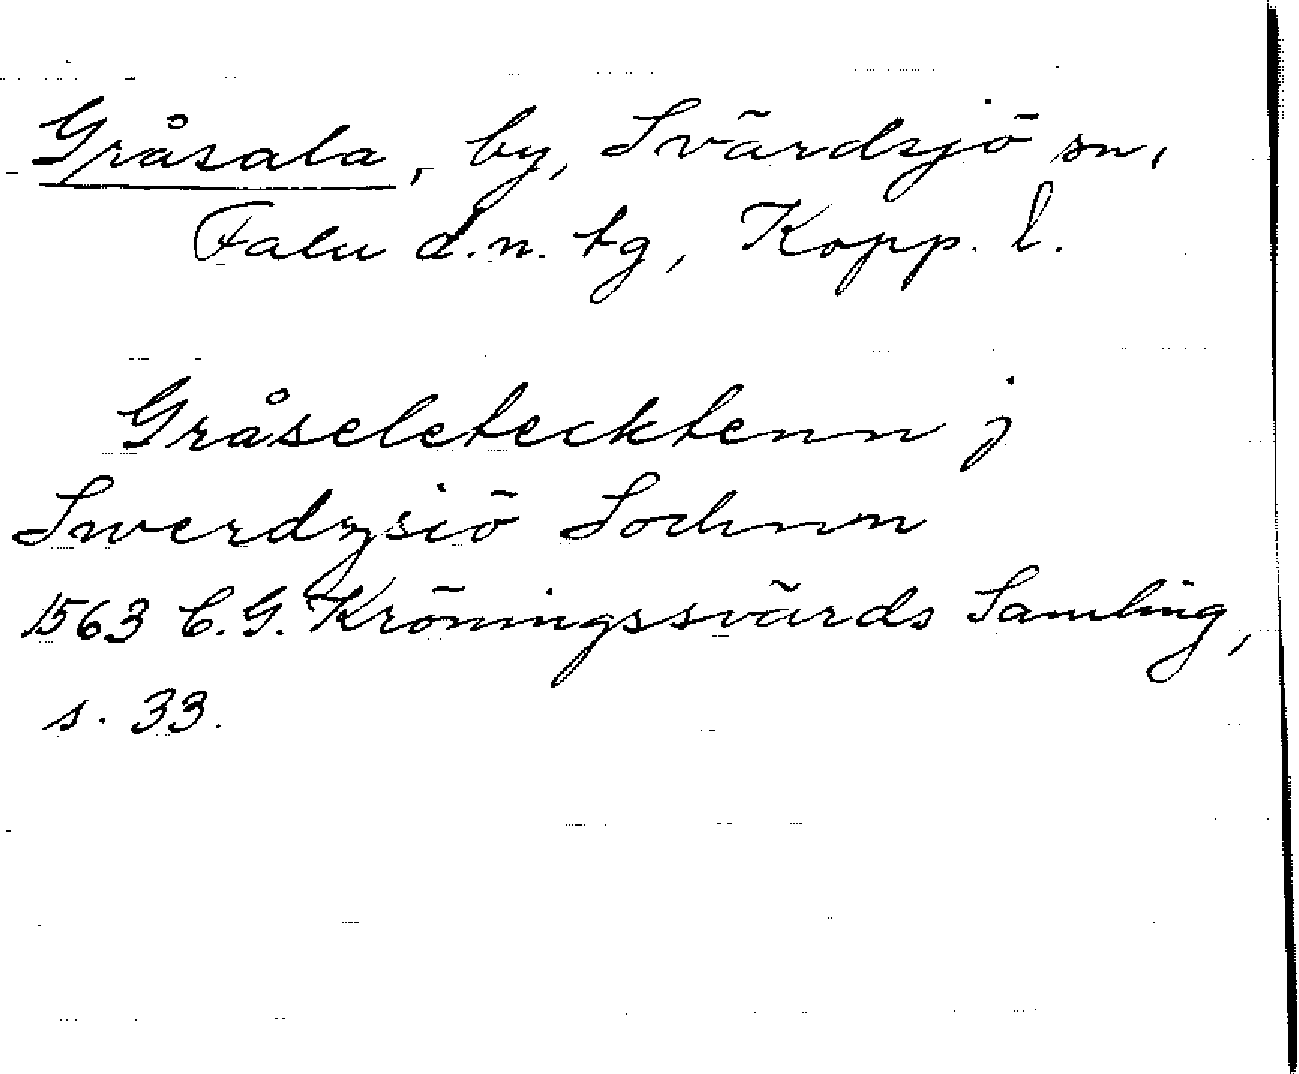 Gråsala, by, Svärdsjö sn,
Falu d.n. tg, Kopp. l.
Gråseletecktenn j
Swerdzsiö Sochnn
1563 C. G. Kröningssvärds Samling,
s. 33.